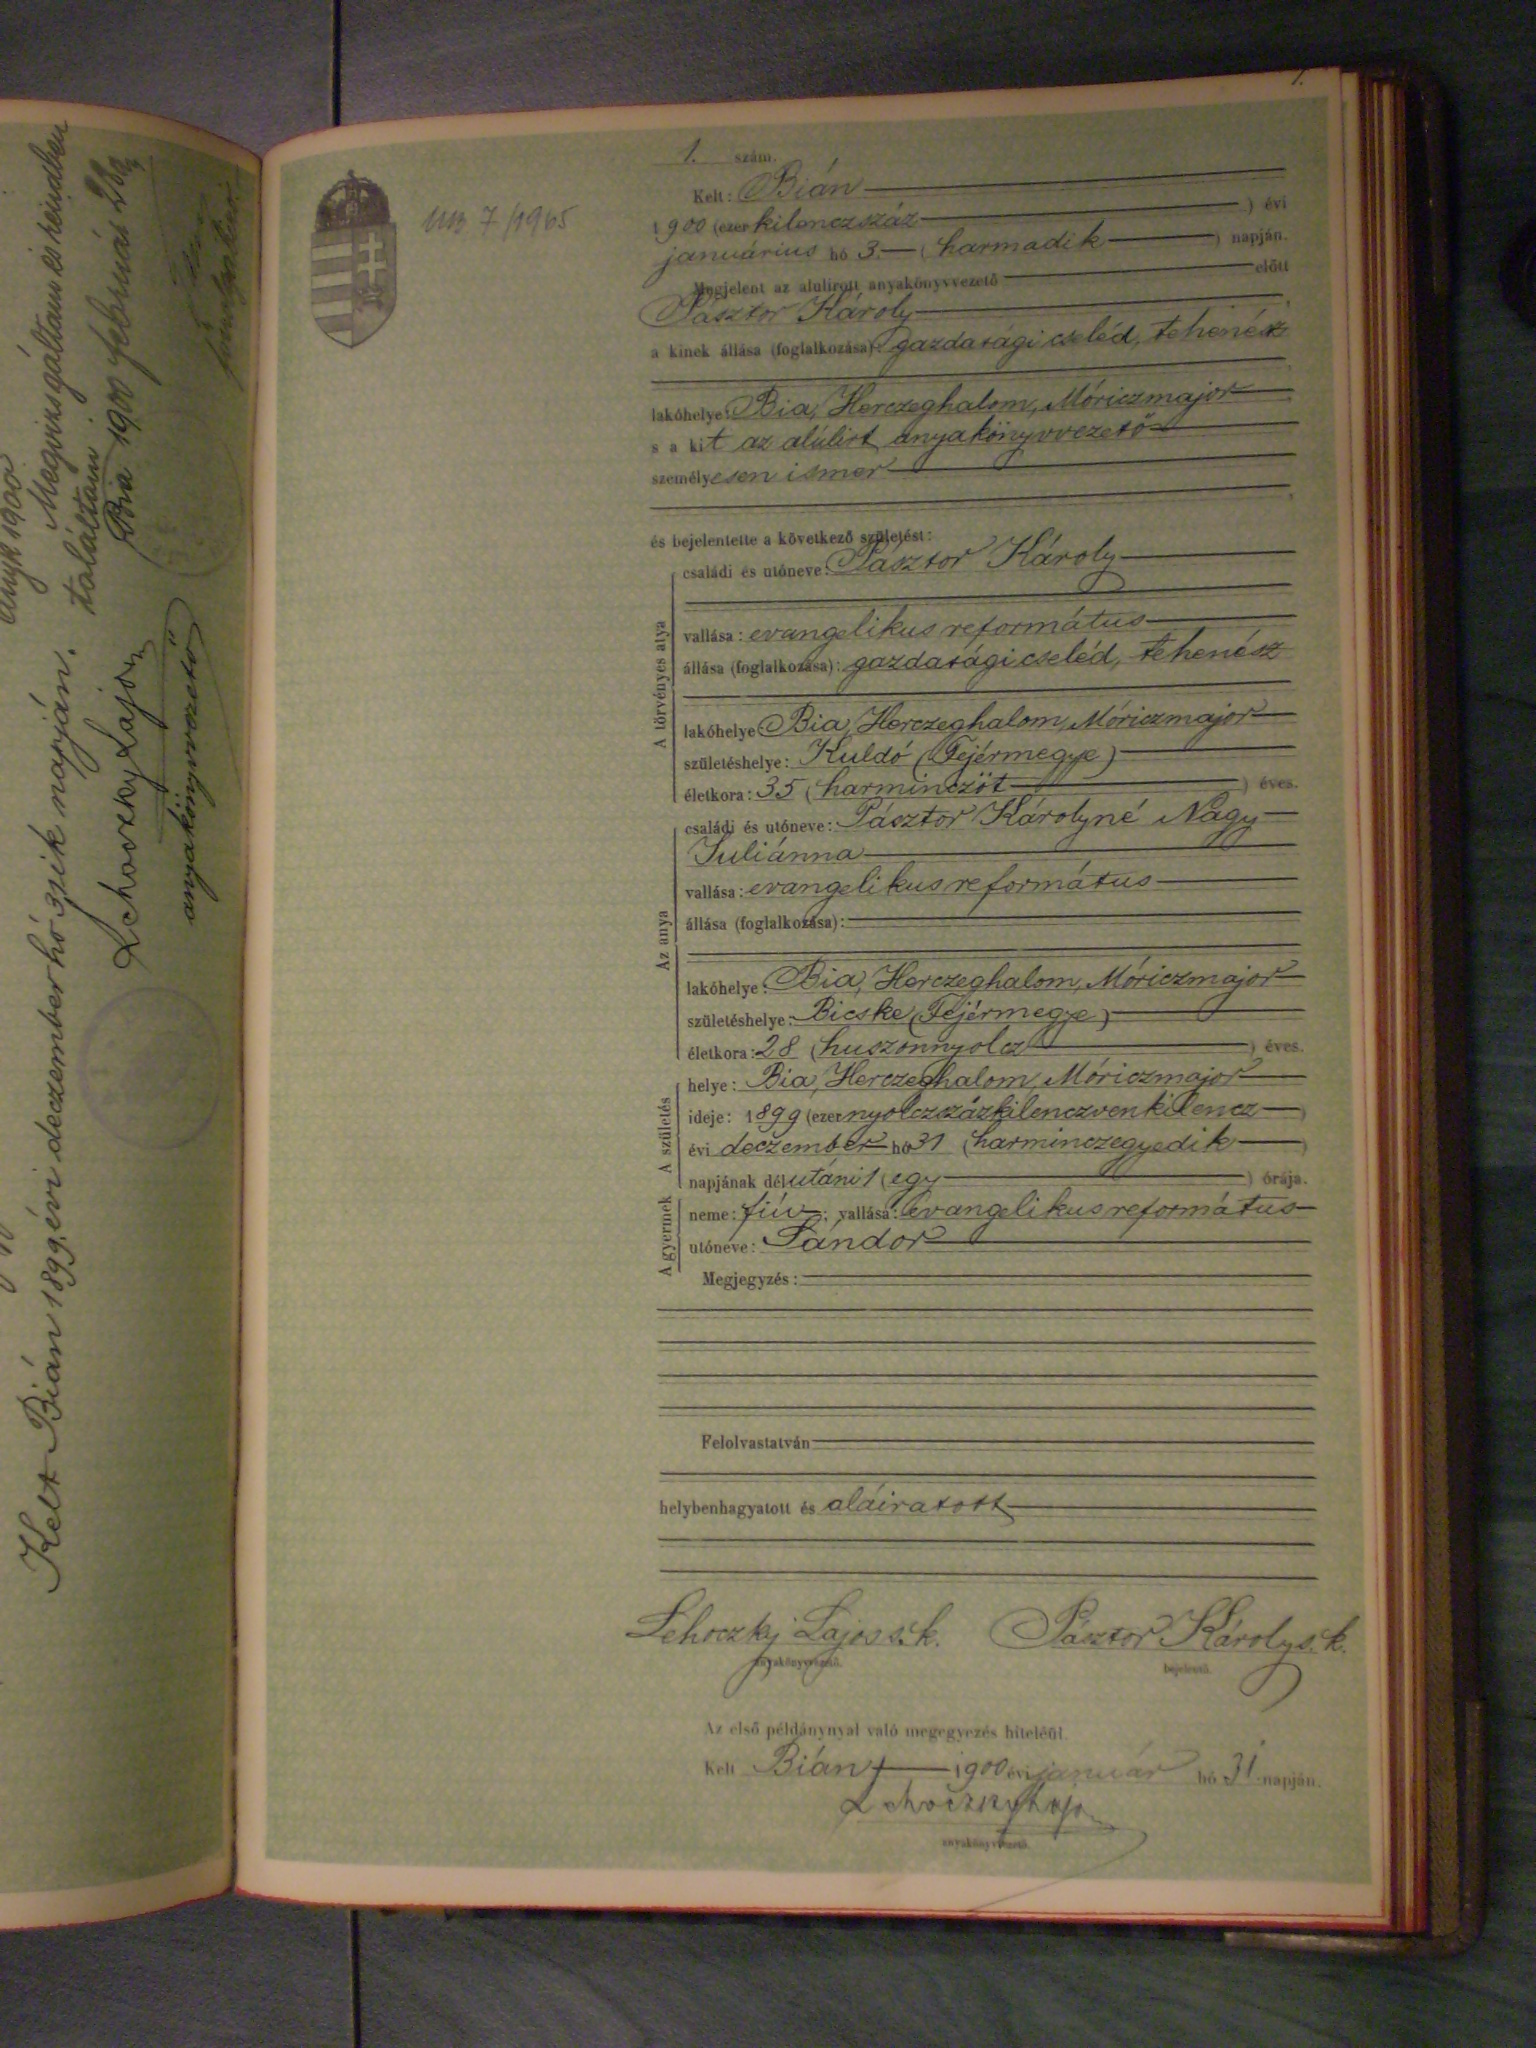 1.
1. szám.
Kelt: Bián
1900 (ezerkilenczszáz) évi
januárius hó 3. (harmadik) napján.
Megjelent az alulirott anyakönyvvezető előtt
Pásztor Károly,
a kinek állása (foglalkozása): gazdasági cseléd, tehenész
lakóhelye: Bia, Herczeghalom, Móriczmajor
s a kit az alúlirt anyakönyvvezető
személyesen ismer
és bejelentette a következő születést:
A törvényes atya
családi és utóneve: Pásztor Károly
vallása: evangelikus református
állása (foglalkozása): gazdasági cseléd, tehenész
lakóhelye: Bia, Herczeghalom, Móriczmajor
születéshelye: Kuldó (Fejérmegye)
életkora: 35 (harminczöt) éves.
Az anya
családi és utóneve: Pásztor Károlyné Nagy
Juliánna
vallása: evangelikus református
állása (foglalkozása):
lakóhelye: Bia, Herczeghalom, Móriczmajor
születéshelye: Bicske (Fejérmegye)
életkora: 28 (huszonnyolcz) éves.
A születés
helye: Bia, Herczeghalom, Móriczmajor
ideje: 1899 (ezernyolczszázkilenczvenkilencz)
évi deczember hó 31 (harminczegyedik)
napjának délutáni 1 (egy) órája.
A gyermek
neme: fiú; vallása: evangelikus református
utóneve: Sándor
Megjegyzés:
Felolvastatván
helybenhagyatott és aláiratott
Lehoczky Lajos s.k. Pásztor Károly s.k.
anyakönyvvezető. bejelentő.
Az első példánynyal való megegyezés hiteléül.
Kelt Bián, 1900 évi január hó 31 napján.
Lehoczky Lajos
anyakönyvvezető.
7/1965
Kelt Bián 1899. évi deczember hó 31ik napján.
Lehoczky Lajos
anyakönyvvezető
1900
Megvizsgáltam és rendben
találtam
Bia 1900 február 28